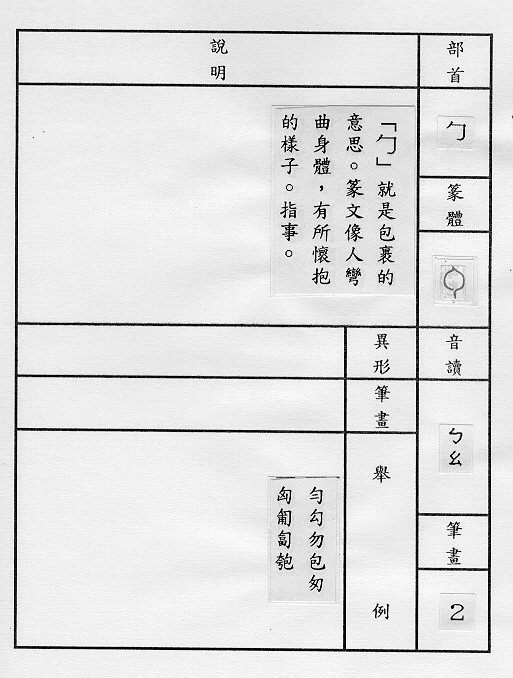 部首
勹
篆體
音讀
ㄅㄠ
筆畫
2
說明
「勹」就是包裹的
意思。篆文像人彎
曲身體，有所懷抱
的樣子。指事。
異形
筆畫
舉例
勻勾勿包匆
匈匍匐匏